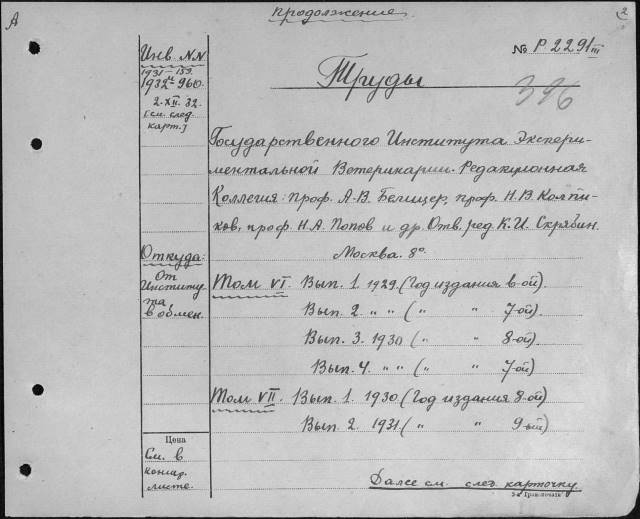 продолжение.
А
2
№ Р 2291 III
396
Инв. NN
1931-159.
1932 № 960.
2.XII.32.
(см. след.
карт.)
Труды
Государственного Института Экспери-
ментальной Ветеринарии. Редакционная
Коллегия: проф. А.В. Белицер, проф. Н.В. Колпи-
ков, проф. Н.А. Попов и др. Отв. ред. К.И. Скрябин.
Москва. 8°.
Откуда:
От
Институ-
та
в обмен.
Том VI. Вып. 1. 1929. (Год издания 6-ой).
Вып. 2 " " ( " " 7-ой)
Вып. 3. 1930 ( " " 8-ой).
Вып. 4. " " ( " " 7-ой)
Том VII. Вып. 1. 1930 (Год издания 8-ой)
Вып. 2 1931 ( " " 9-ый)
Цена
См. в
листе.
Далее см. след. карточку.